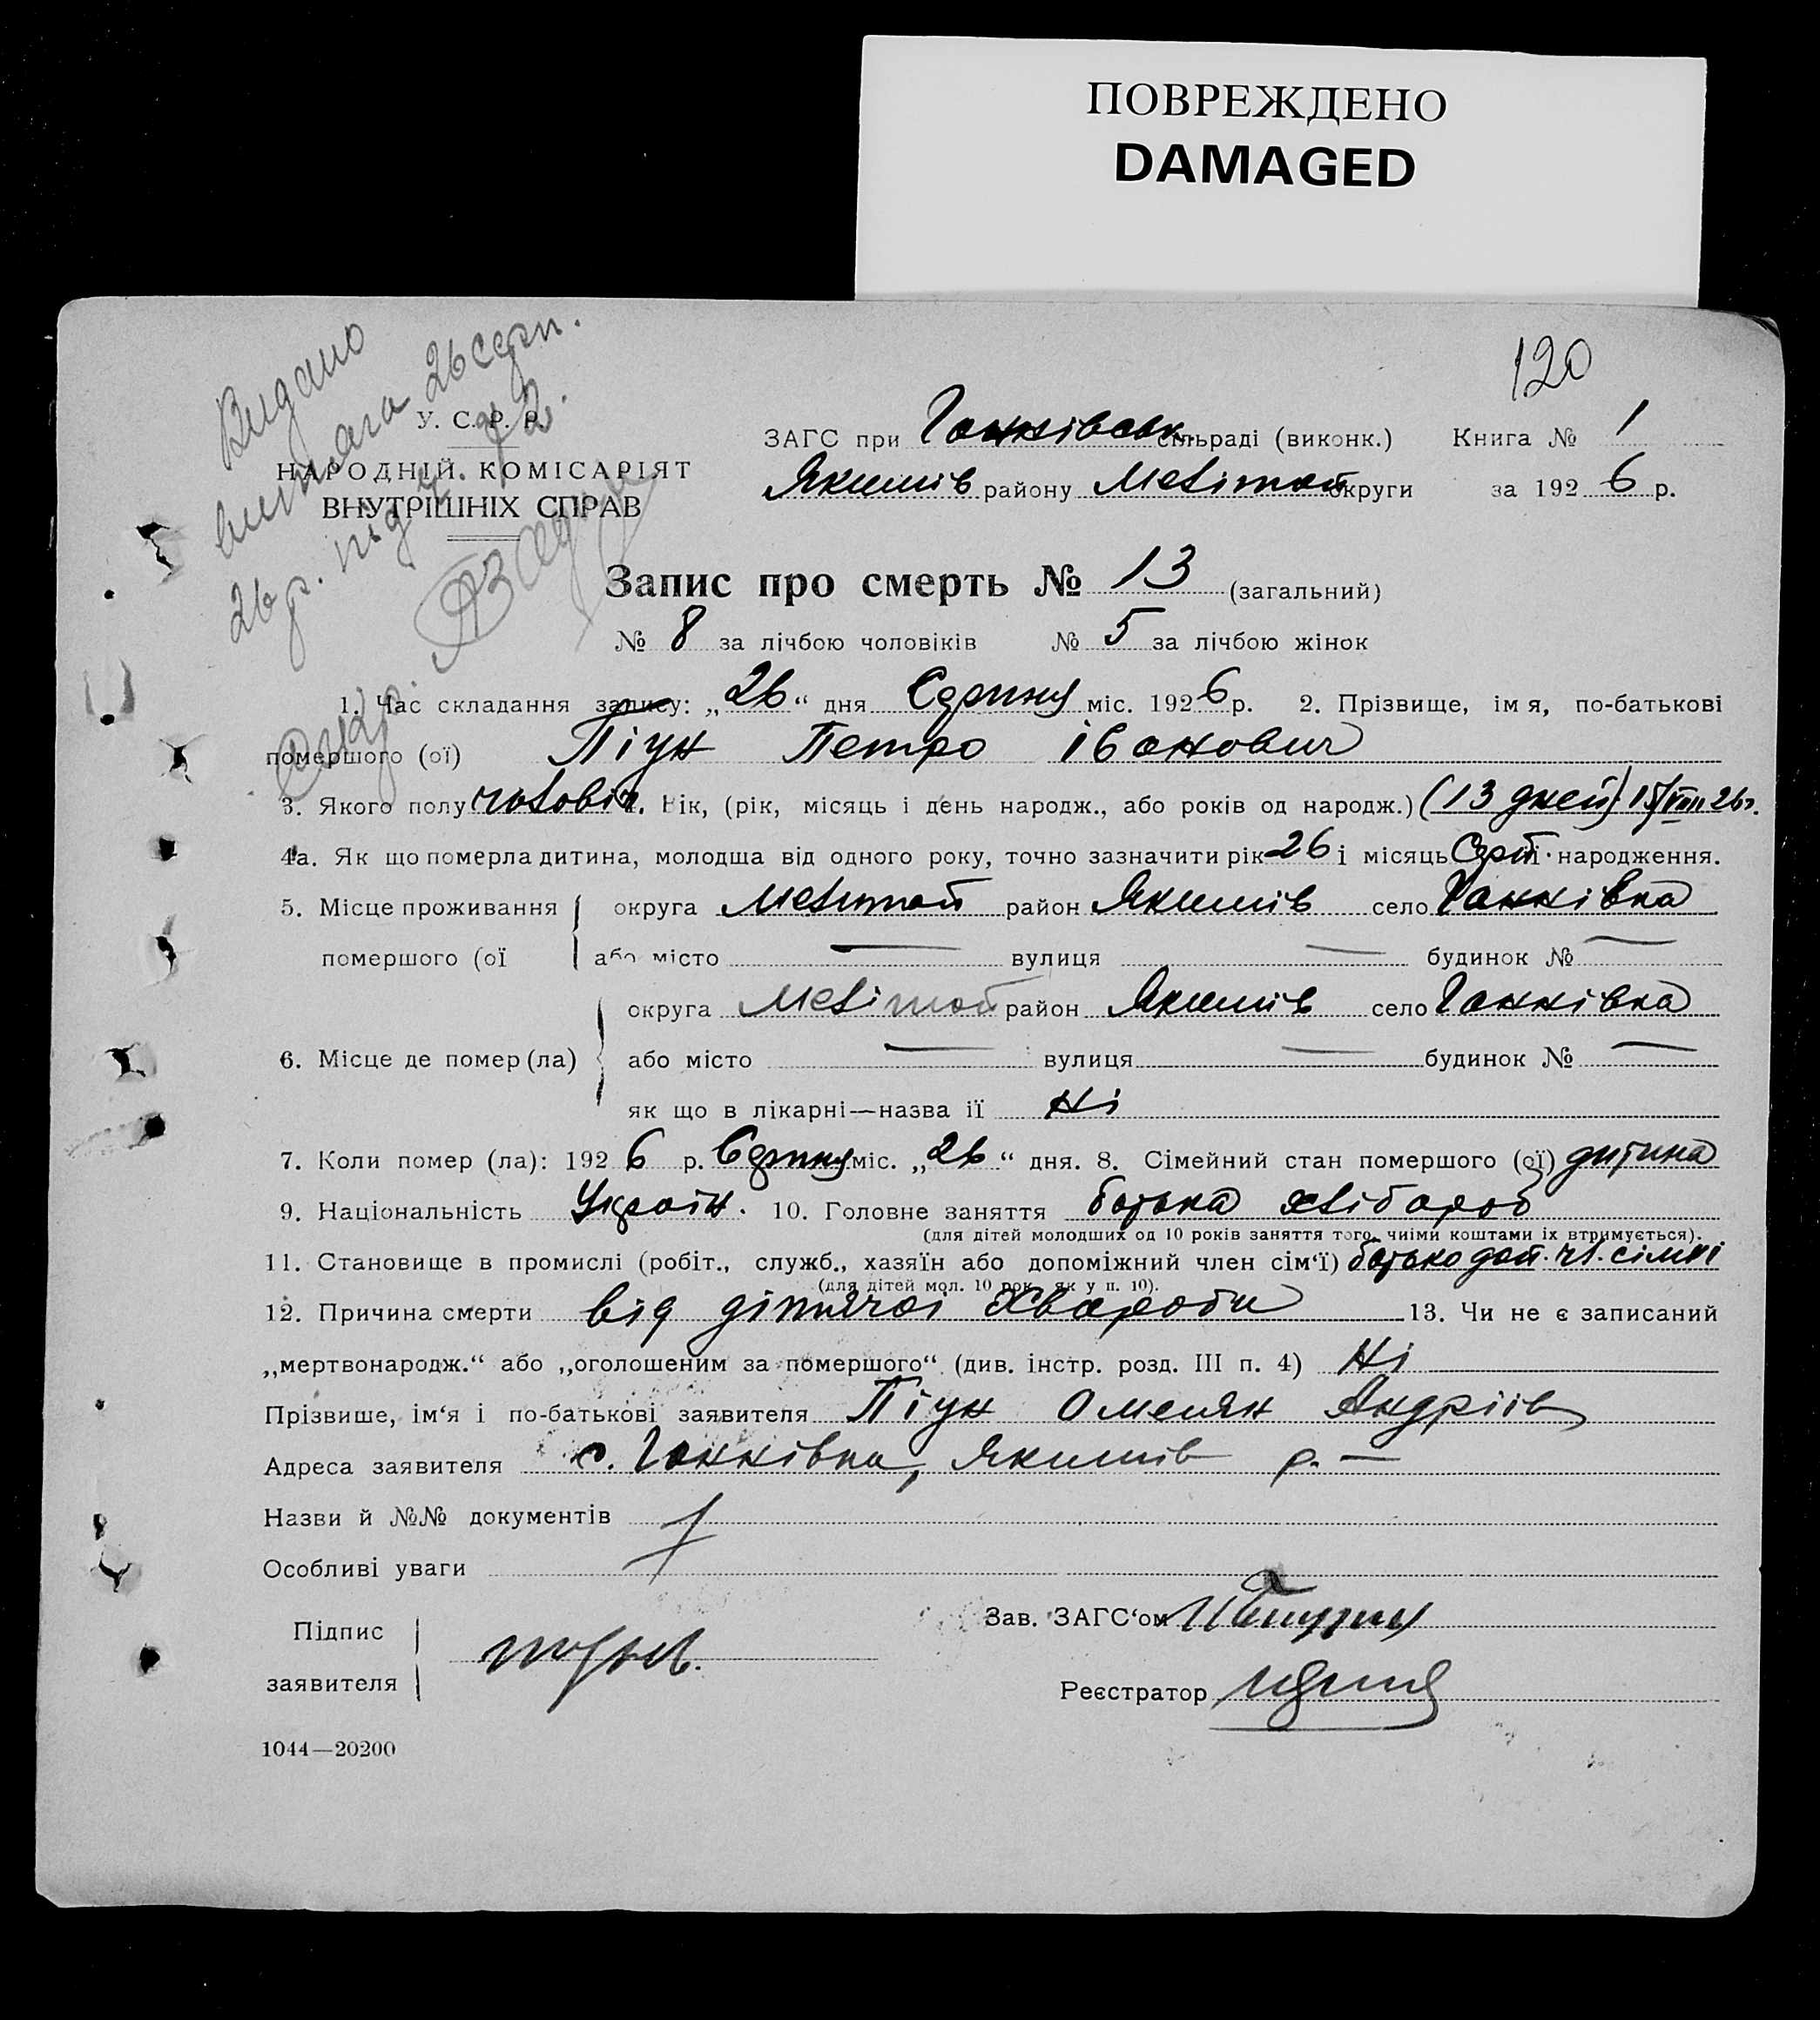 ПОВРЕЖДЕНО
DAMAGED
120
Видано
витяга 26 серп.
26 р. під ч. 72.
У. С. Р. Р.
НАРОДНІЙ КОМІСАРІЯТ
ВНУТРІШНІХ СПРАВ
ЗАГС при Ганнівськ. сільраді (виконк.) Книга № 1
Якимів району Мелітоп округи за 1926 р.
Запис про смерть № 13 (загальний)
№ 8 за лічбою чоловіків № 5 за лічбою жінок
1. Час складання запису: „26“ дня Серпня міс. 1926 р. 2. Прізвище, імя, по-батькові
помершого (ої) Піун Петро Іванович
3. Якого полу чоловіч. 4. Вік, (рік, місяць і день народж., або років од народж.) (13 дней) 13/VIII 26 р.
4а. Як що померла дитина, молодша від одного року, точно зазначити рік 26 і місяць Серп. народження.
5. Місце проживання округа Мелітоп район Якимів село Ганнівка
помершого (ої або місто — вулиця — будинок № —
округа Мелітоп район Якимів село Ганнівка
6. Місце де помер (ла) або місто — вулиця — будинок № —
як що в лікарні—назва її Ні
7. Коли помер (ла): 1926 р. Серпня міс. „26“ дня. 8. Сімейний стан помершого (ої) дитина
9. Національність Україн. 10. Головне заняття батька хлібороб
(для дітей молодших од 10 років заняття того, чиїми коштами їх втримується).
11. Становище в промислі (робіт., служб., хазяїн або допоміжний член сім‘ї) батько доп. чл. сімї
(для дітей мол. 10 рок. як у п. 10).
12. Причина смерти від дитячої хвароби 13. Чи не є записаний
„мертвонародж.“ або „оголошеним за помершого“ (див. інстр. розд. III п. 4) Ні
Прізвише, ім‘я і по-батькові заявителя Піун Омелян Андріїв
Адреса заявителя с. Ганнівка, Якимів р. —
Назви й №№ документів
Особливі уваги
Підпис
заявителя
Зав. ЗАГС‘ом
Реєстратор
1044—20200